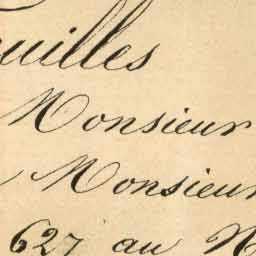 uilles
Monsieur
Monsieur
627 au